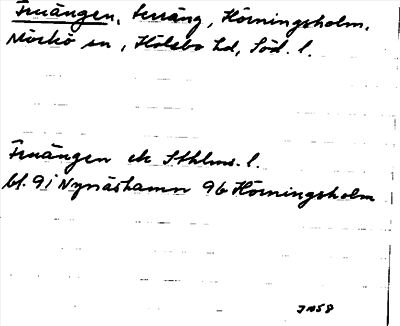 Fruängen, terräng, Hörningsholm,
Mörkö sn, Hölebo hd, Söd. l.
Fruängen ek Sthlms. l.
bl. 9i Nynäshamn 9b Hörningsholm
JM58